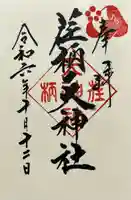 奉拝
荏柄天神社
令和六年十月十二日
荏柄